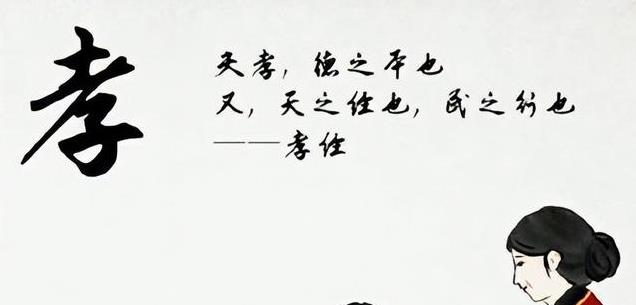 孝
夫孝，德之本也
又，天之经也，民之行也
——孝经